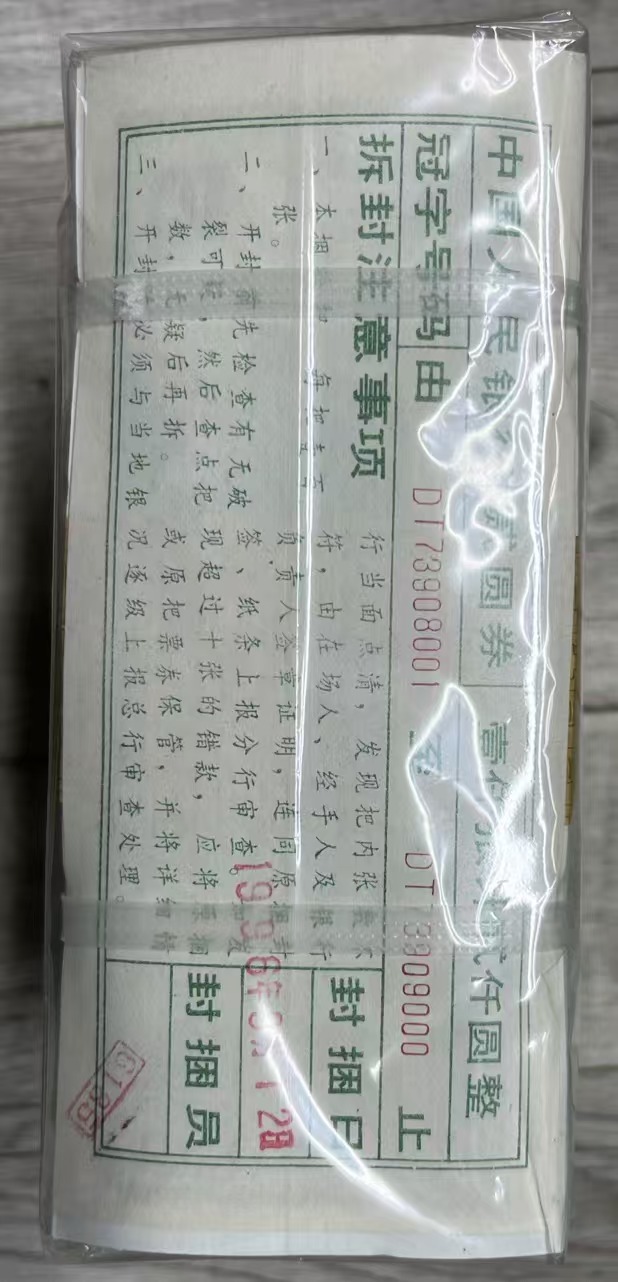 中国人民银 贰圆券 贰仟圆整
冠字号码 由 DT73908001 至 DT 3909000 止
拆封注意事项
一、本捆 每把壹百
张。
二、开封前先检查有无破
裂可疑,然后查点把
数,无疑后再拆。
三、开封 必须与当地银
行当面点清,发现把内张数不
符,由在场人、经手人及银行
负责人签章证明,连同原捆封
签、纸条上报分行审查。如发
现超过十张的错款,应将原捆
或原把票券保管,并将详细情
况逐级上报总行审查处理。
封捆日
封捆员